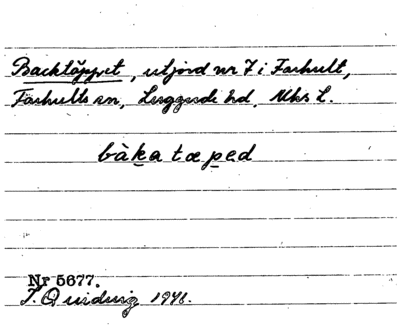 Backtäppet, utjord nr 7 i Farhult,
Farhults sn, Luggude hd, Mks L.
bàka tæped
Nr 5677.
1941.